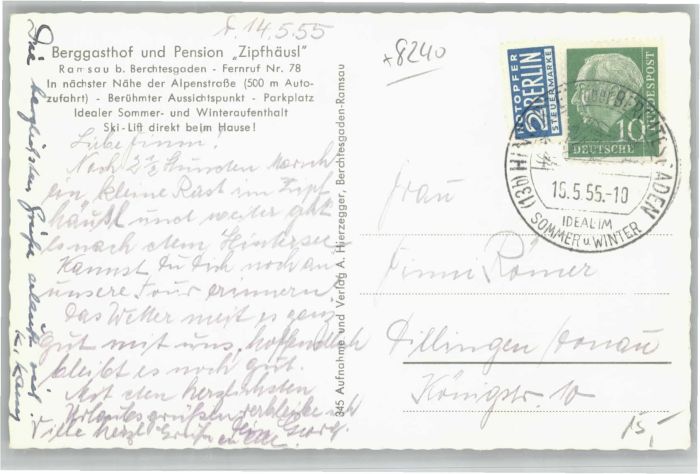 d. 14.5.55
Berggasthof und Pension „Zipfhäusl"
Ramsau b. Berchtesgaden - Fernruf Nr. 78
In nächster Nähe der Alpenstraße (500 m Auto-
zufahrt) - Berühmter Aussichtspunkt - Parkplatz
Idealer Sommer- und Winteraufenthalt
Ski-Lift direkt beim Hause!
Noch 2½ Stunden Marsch
ein kleine Rast im Zipf-
häusl und weiter geht
es nach dem Hintersee
Kannst Du Dich noch an
unsere Tour erinnern?
Das Wetter meint es ganz
gut mit uns, hoffentlich
bleibt es noch gut.
Mit den herzlichsten
Urlaubsgrüßen
Dein Georg.
Viele herzl. Grüße
Die herzlichsten Grüße erlaubt sich
345 Aufnahme und Verlag A. Hierzegger, Berchtesgaden-Ramsau
+8240
NOTOPFER
2 BERLIN
STEUERMARKE
DEUTSCHE BUNDESPOST
10
(13b)
16.5.55.-10
IDEAL IM
SOMMER u. WINTER
Frau
Römer
Dillingen/Donau
Königstr 10
15,-